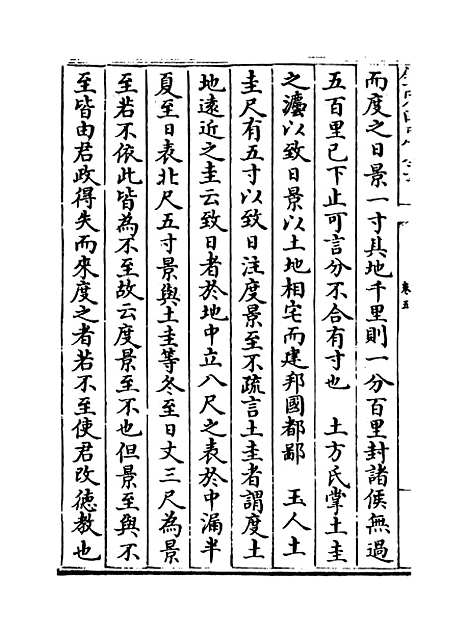 而度之日景一寸其地千里則一分百里封諸侯無過
五百里已下止可言分不合有寸也　土方氏掌土圭
之灋以致日景以土地相宅而建邦國都鄙　玉人土
圭尺有五寸以致日注度景至不疏言土圭者謂度土
地遠近之圭云致日者於地中立八尺之表於中漏半
夏至日表北尺五寸景與土圭等冬至日丈三尺為景
至若不依此皆為不至故云度景至不也但景至與不
至皆由君政得失而來度之者若不至使君改徳教也
卷五